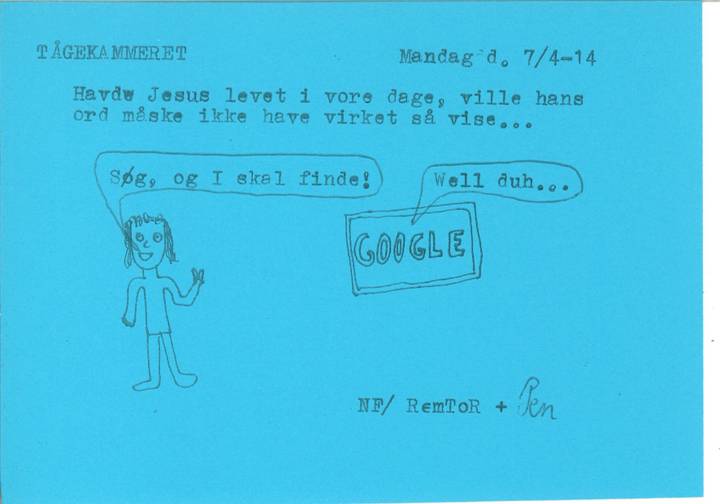 TÅGEKAMMERET
Mandag d. 7/4-14
Havdw Jesus levet i vore dage, ville hans
ord måske ikke have virket så vise...
Søg, og I skal finde!
Well duh...
GOOGLE
NF/ RemToR + Pen